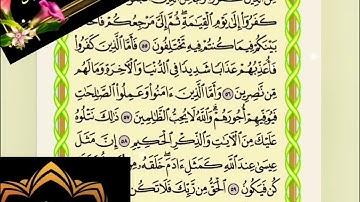 كَفَرُوٓا۟ إِلَىٰ يَوْمِ ٱلْقِيَـٰمَةِ ثُمَّ إِلَىَّ مَرْجِعُكُمْ فَأَحْكُمُ
بَيْنَكُمْ فِيمَا كُنتُمْ فِيهِ تَخْتَلِفُونَ ٥٥ فَأَمَّا ٱلَّذِينَ كَفَرُوا۟
فَأُعَذِّبُهُمْ عَذَابًا شَدِيدًا فِى ٱلدُّنْيَا وَٱلْـَٔاخِرَةِ وَمَا لَهُم
مِّن نَّـٰصِرِينَ ٥٦ وَأَمَّا ٱلَّذِينَ ءَامَنُوا۟ وَعَمِلُوا۟ ٱلصَّـٰلِحَـٰتِ
فَيُوَفِّيهِمْ أُجُورَهُمْ ۗ وَٱللَّهُ لَا يُحِبُّ ٱلظَّـٰلِمِينَ ٥٧ ذَٰلِكَ نَتْلُوهُ
عَلَيْكَ مِنَ ٱلْـَٔايَـٰتِ وَٱلذِّكْرِ ٱلْحَكِيمِ ٥٨ إِنَّ مَثَلَ
عِيسَىٰ عِندَ ٱللَّهِ كَمَثَلِ ءَادَمَ ۖ خَلَقَهُۥ مِن
كُن فَيَكُونُ ٥٩ ٱلْحَقُّ مِن رَّبِّكَ فَلَا تَكُن